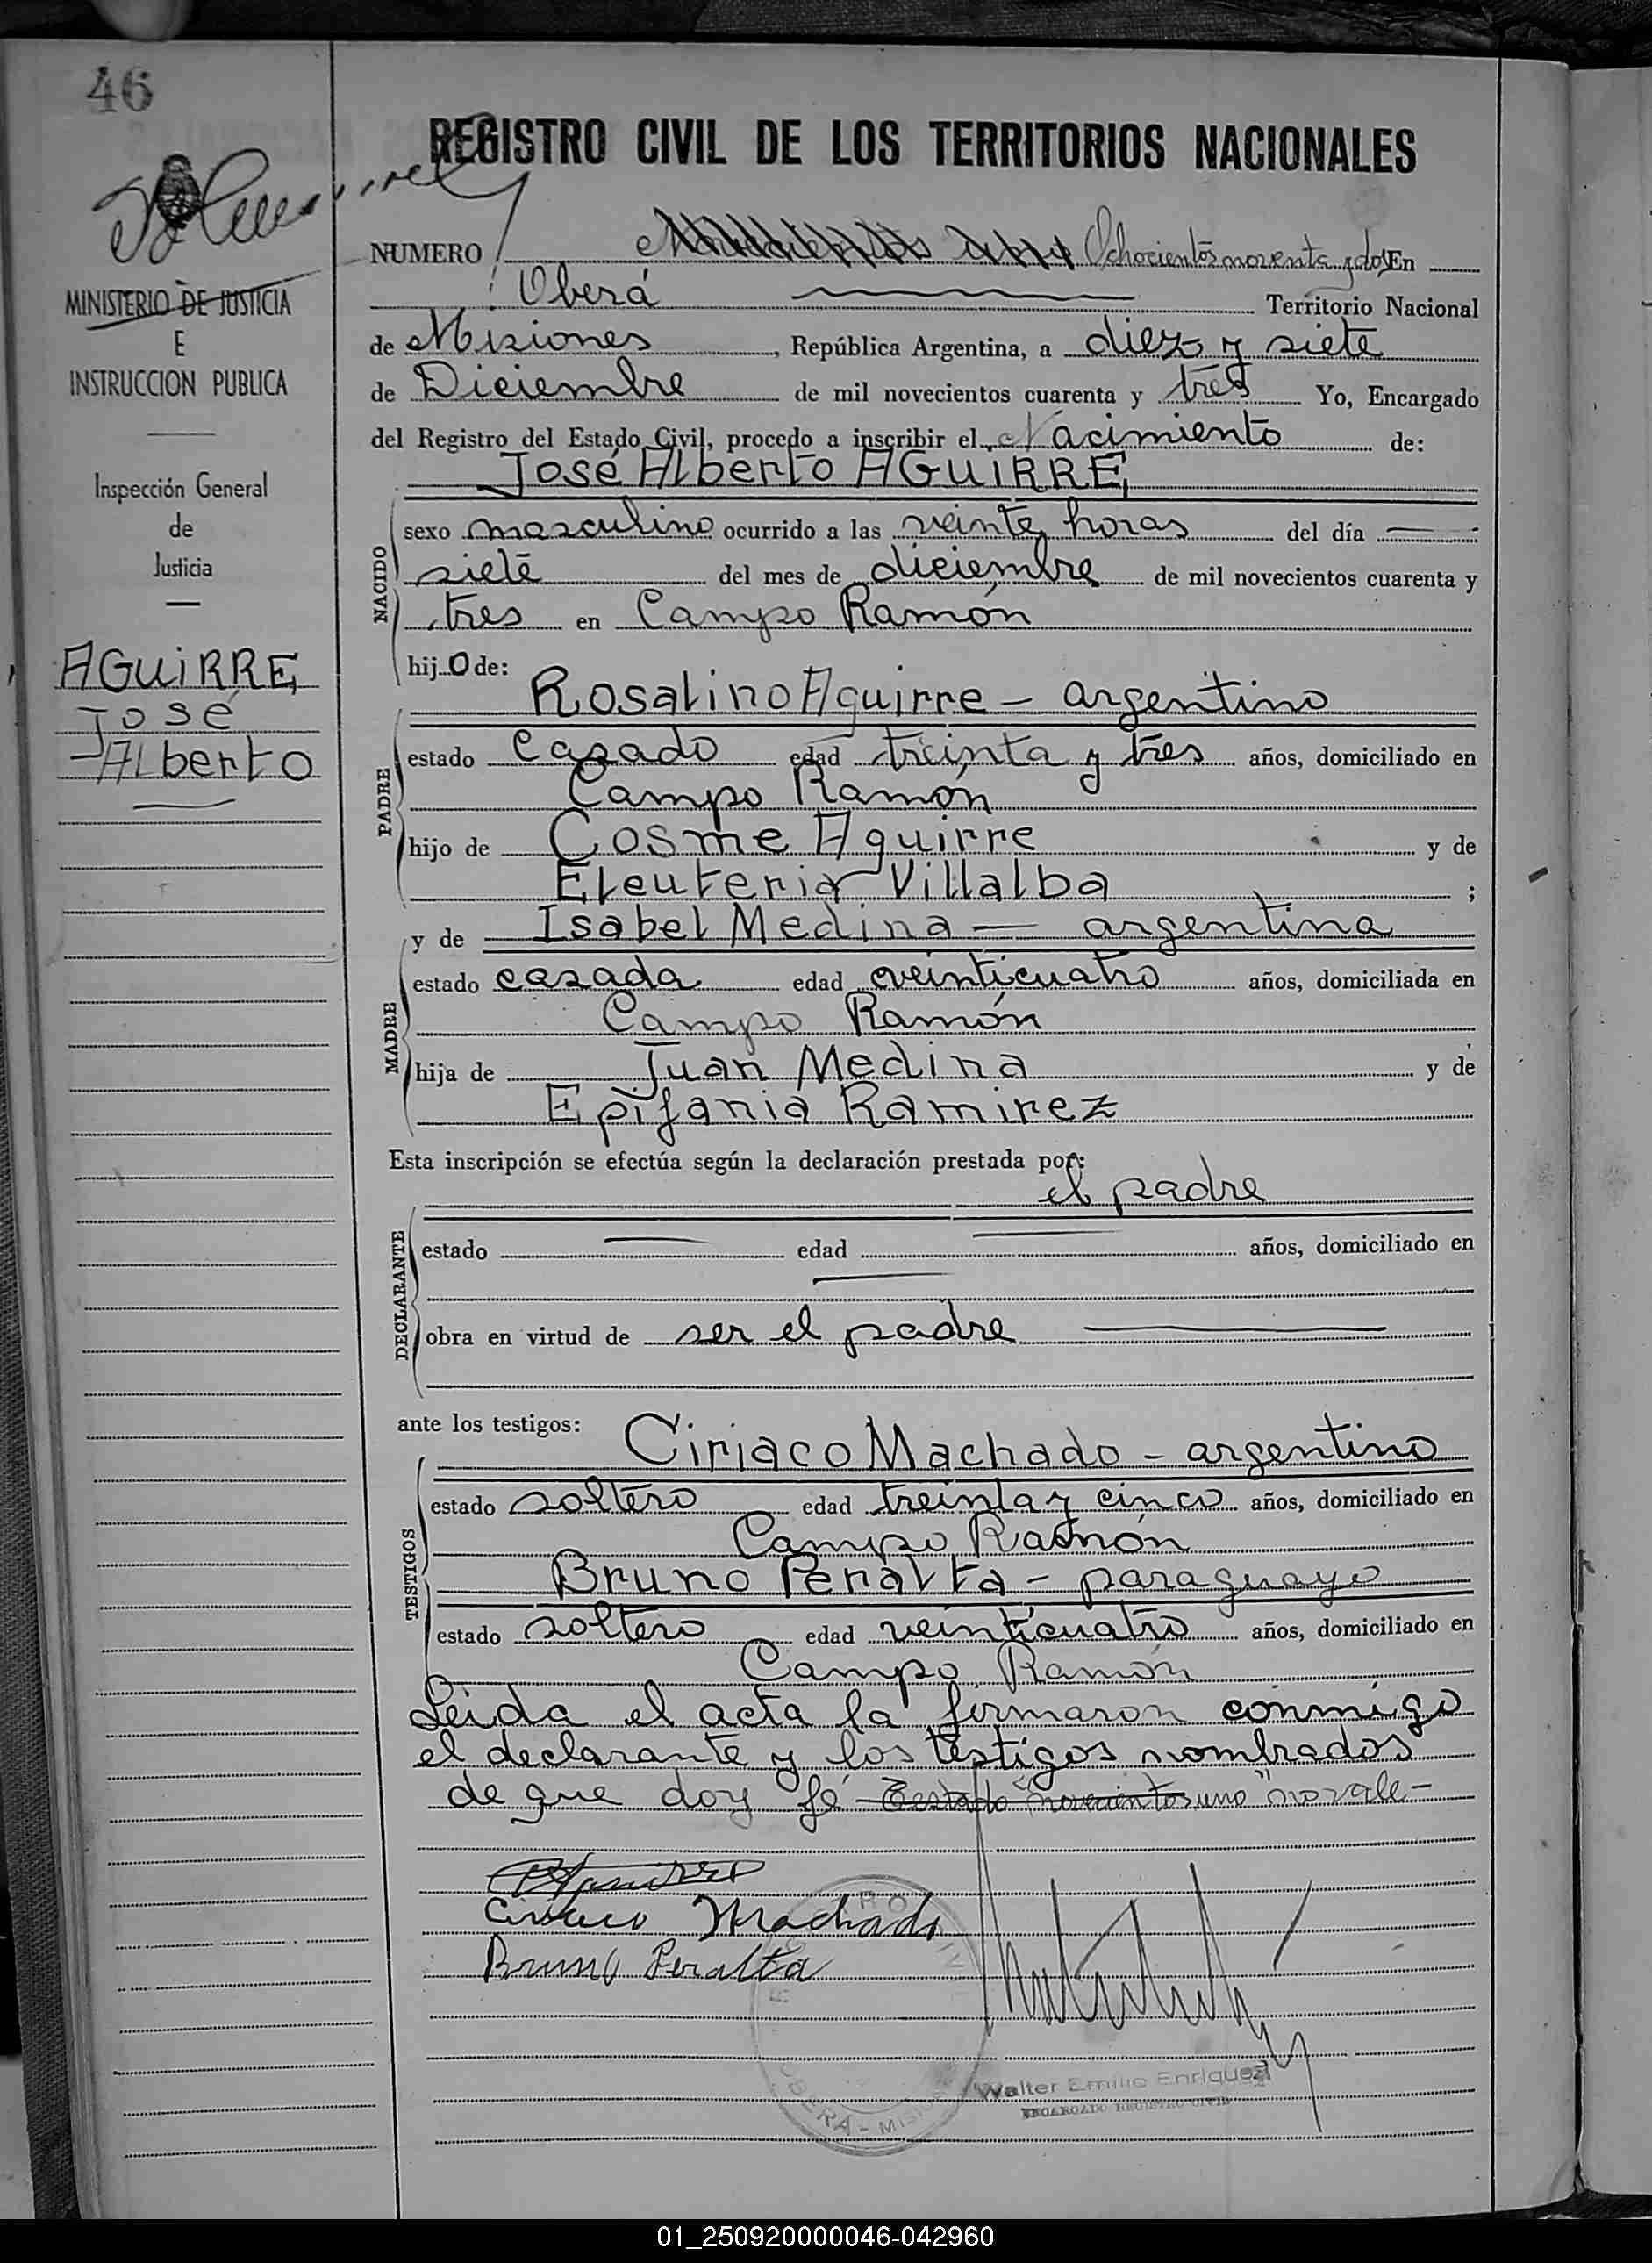 46
REGISTRO CIVIL DE LOS TERRITORIOS NACIONALES
NUMERO Ochocientos noventa y dos En
Oberá Territorio Nacional
de Misiones, República Argentina, a diez y siete
de Diciembre de mil novecientos cuarenta y tres Yo, Encargado
del Registro del Estado Civil, procedo a inscribir el Nacimiento de:
José Alberto AGUIRRE,
sexo masculino ocurrido a las veinte horas del día
siete del mes de diciembre de mil novecientos cuarenta y
tres en Campo Ramón
hijo de:
NACIDO
Rosalino Aguirre - argentino
estado casado edad treinta y tres años, domiciliado en
Campo Ramón
hijo de Cosme Aguirre y de
Eleuteria Villalba ;
PADRE
y de Isabel Medina — argentina
estado casada edad veinticuatro años, domiciliada en
Campo Ramón
hija de Juan Medina y de
Epifania Ramirez
MADRE
Esta inscripción se efectúa según la declaración prestada por:
el padre
estado edad años, domiciliado en
obra en virtud de ser el padre
DECLARANTE
ante los testigos:
Ciriaco Machado - argentino
estado soltero edad treinta y cinco años, domiciliado en
Campo Ramón
Bruno Peralta - paraguayo
estado soltero edad veinticuatro años, domiciliado en
Campo Ramón
TESTIGOS
Leida el acta la firmaron conmigo
el declarante y los testigos nombrados
de que doy fé - Testado "novecientos uno" no vale -
Ciriaco Machado
Bruno Peralta
OBERA - MISIONES
Walter Emilio Enriquez
ENCARGADO REGISTRO CIVIL
MINISTERIO DE JUSTICIA
E
INSTRUCCION PUBLICA
Inspección General
de
Justicia
AGUIRRE,
José
Alberto
01_250920000046-042960